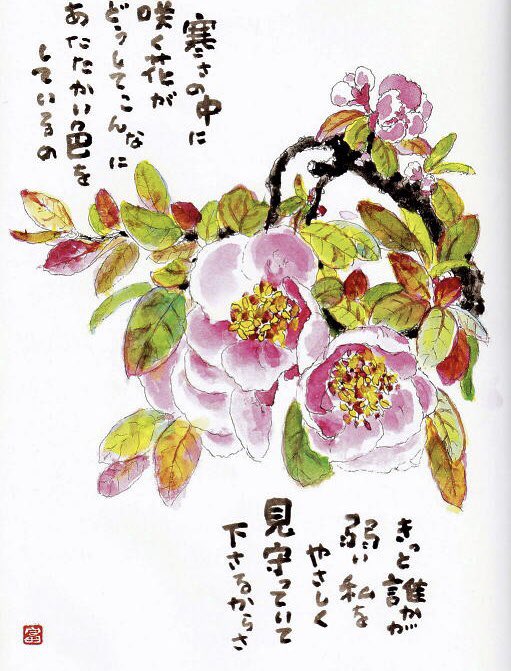 寒さの中に
咲く花が
どうしてこんなに
あたたかい色を
しているの
きっと誰かが
弱い私を
やさしく
見守っていて
下さるからさ
富